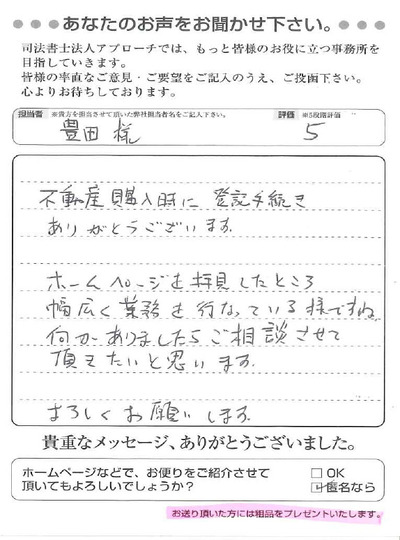 ●●●●●あなたのお声をお聞かせ下さい。●●●●●
司法書士法人アプローチでは、もっと皆様のお役に立つ事務所を
目指していきます。
皆様の率直なご意見・ご要望をご記入のうえ、ご投函下さい。
心よりお待ちしております。
担当者 ※貴方を担当させて頂いた弊社担当者名をご記入下さい。 評価 ※5段階評価
豊田 様 5
不動産購入時に 登記手続き
ありがとうございます
ホームページを拝見したところ
幅広く業務を行なっている様ですね
何かありましたらご相談させて
頂きたいと思います
よろしくお願いします
貴重なメッセージ、ありがとうございました。
ホームページなどで、お便りをご紹介させて □ OK
頂いてもよろしいでしょうか? □ 匿名なら
お送り頂いた方には粗品をプレゼントいたします。